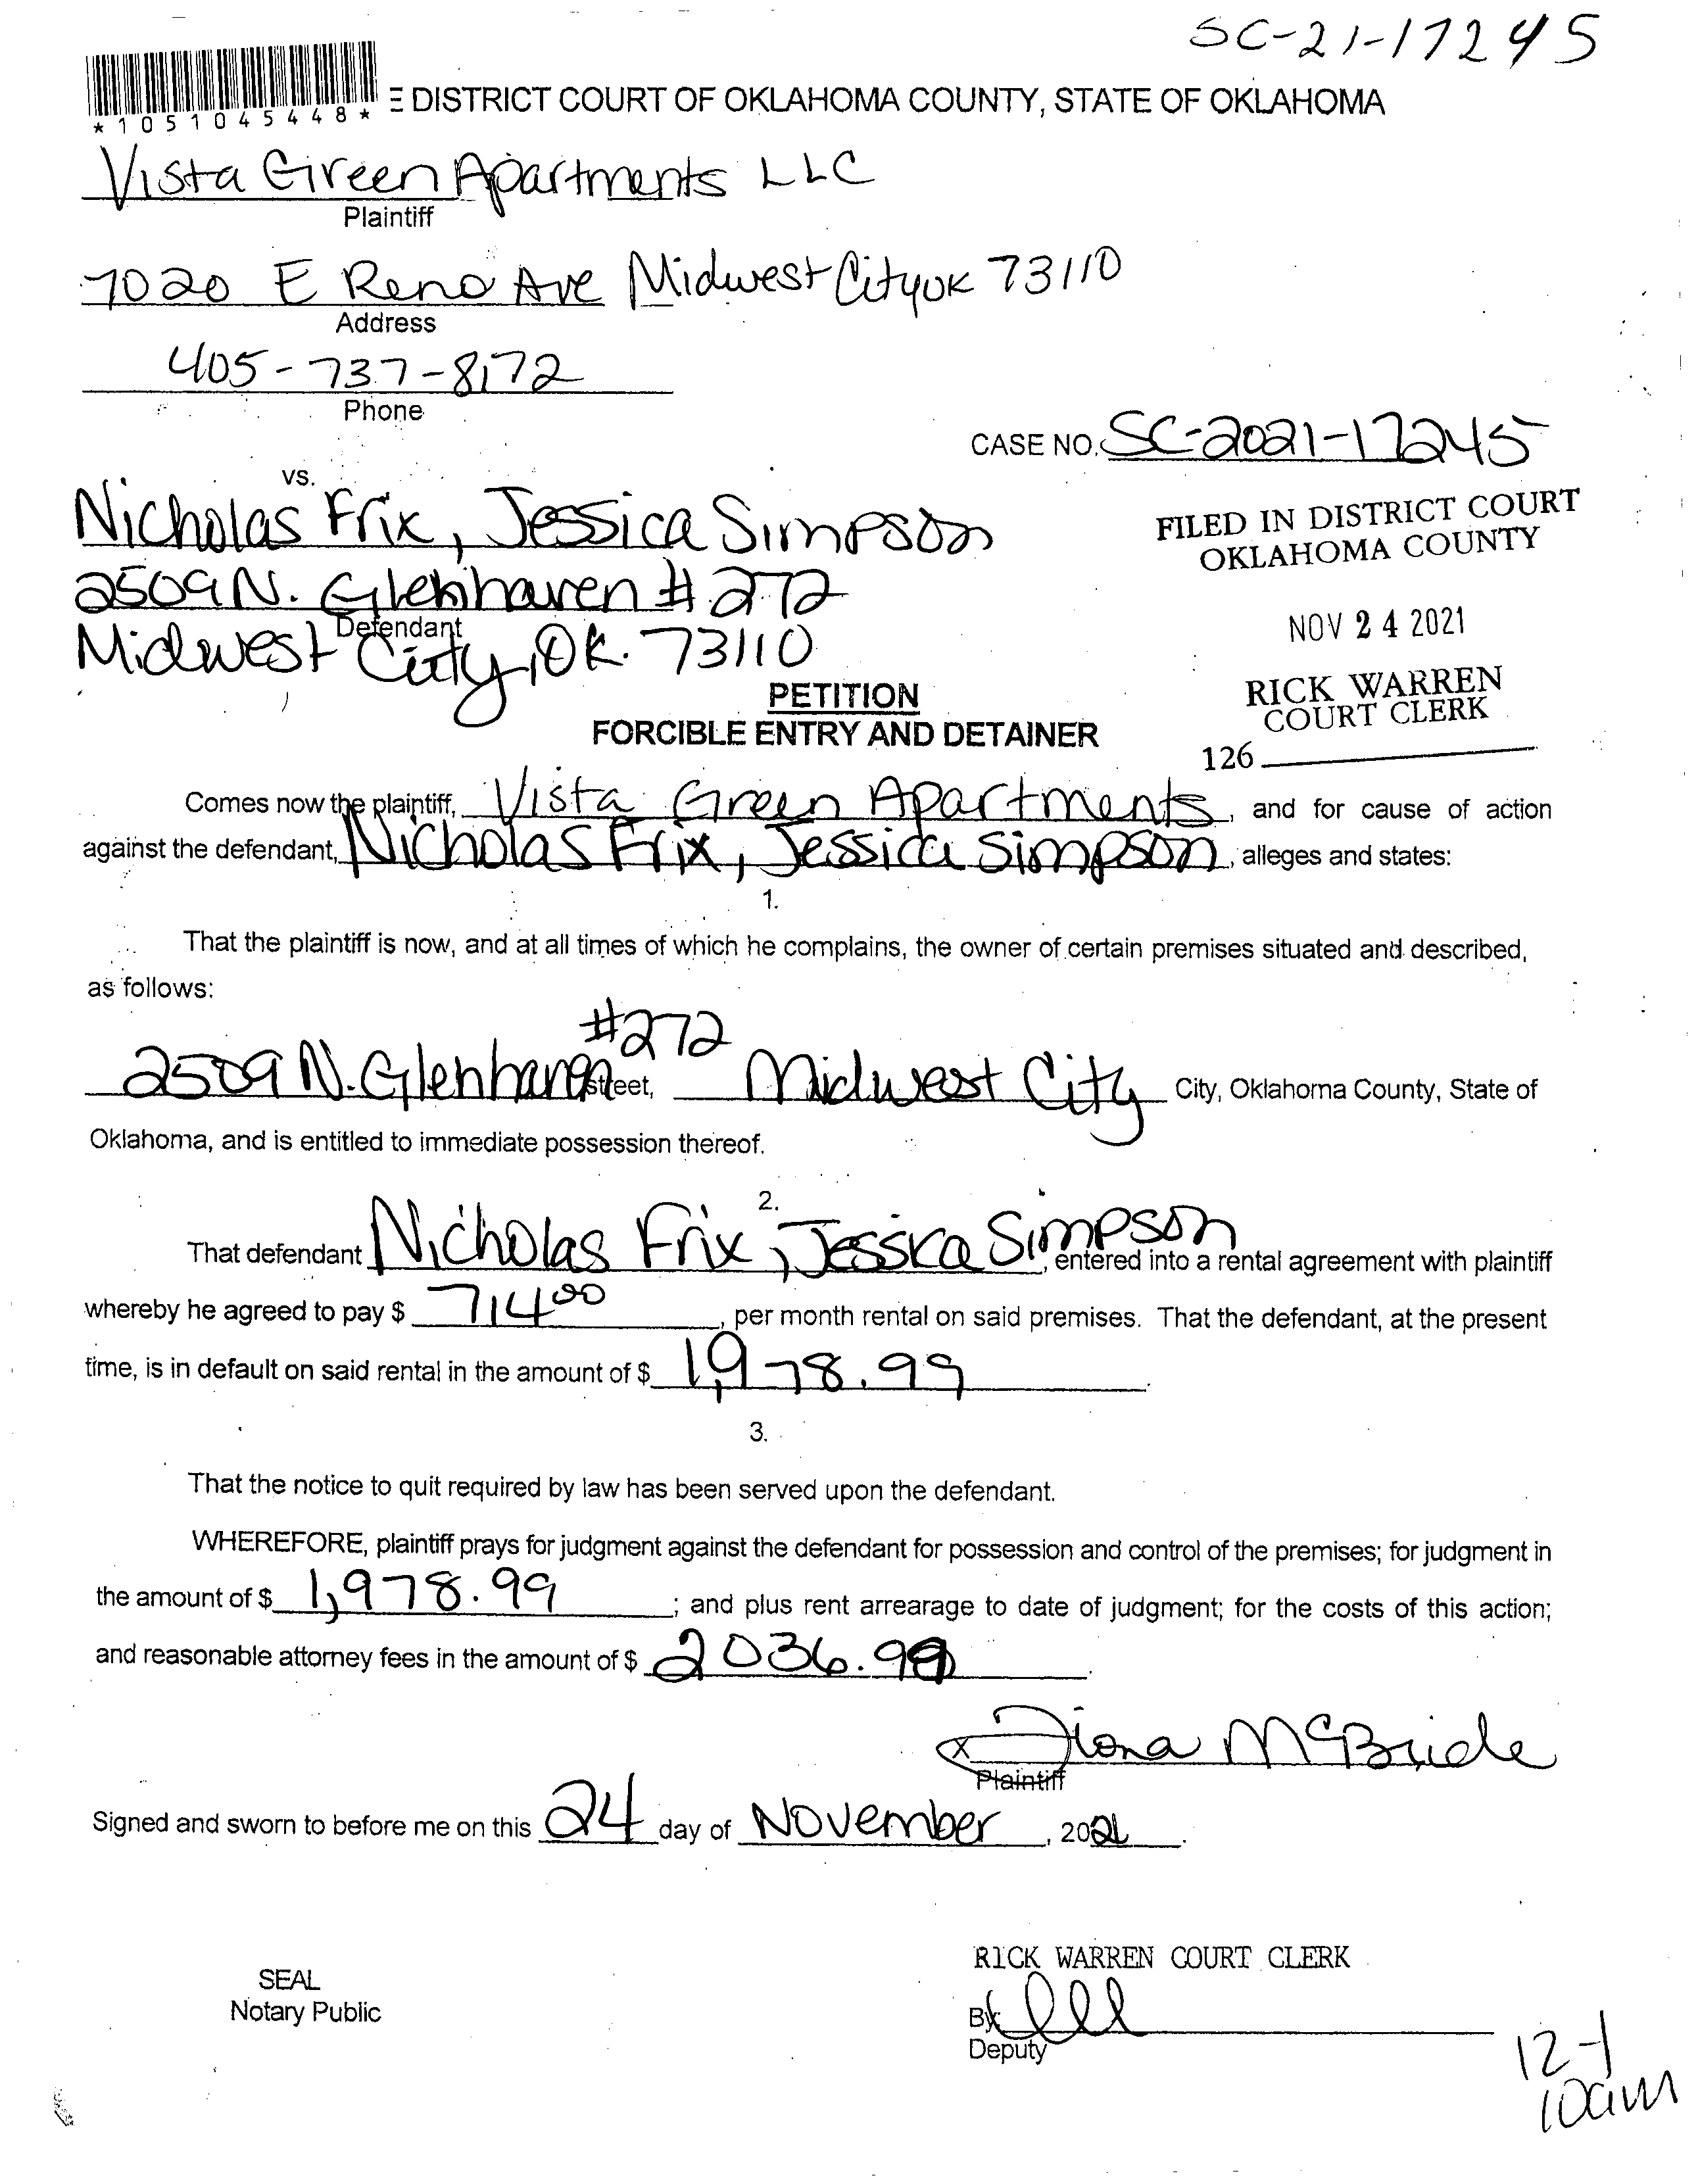 SC-21-17245
*1051045448*
E DISTRICT COURT OF OKLAHOMA COUNTY, STATE OF OKLAHOMA
Vista Green Apartments LLC
Plaintiff
7020 E Reno Ave Midwest City OK 73110
Address
405-737-8172
Phone
CASE NO. SC-2021-17245
vs.
Nicholas Frix, Jessica Simpson
2509 N. Glenhaven #272
Defendant
Midwest City, Ok. 73110
FILED IN DISTRICT COURT
OKLAHOMA COUNTY
NOV 24 2021
RICK WARREN
COURT CLERK
126
PETITION
FORCIBLE ENTRY AND DETAINER
Comes now the plaintiff, Vista Green Apartments, and for cause of action
against the defendant, Nicholas Frix, Jessica Simpson, alleges and states:
1.
That the plaintiff is now, and at all times of which he complains, the owner of certain premises situated and described,
as follows:
#272
2509 N. Glenhaven street, Midwest City City, Oklahoma County, State of
Oklahoma, and is entitled to immediate possession thereof.
2.
That defendant Nicholas Frix, Jessica Simpson, entered into a rental agreement with plaintiff
whereby he agreed to pay $ 714 00, per month rental on said premises. That the defendant, at the present
time, is in default on said rental in the amount of $ 1,978.99.
3.
That the notice to quit required by law has been served upon the defendant.
WHEREFORE, plaintiff prays for judgment against the defendant for possession and control of the premises; for judgment in
the amount of $ 1,978.99; and plus rent arrearage to date of judgment; for the costs of this action;
and reasonable attorney fees in the amount of $ 2036.99.
X Fiona McBride
Plaintiff
Signed and sworn to before me on this 24 day of November, 2021.
RICK WARREN COURT CLERK
SEAL
Notary Public
By:
Deputy
12-1
10am